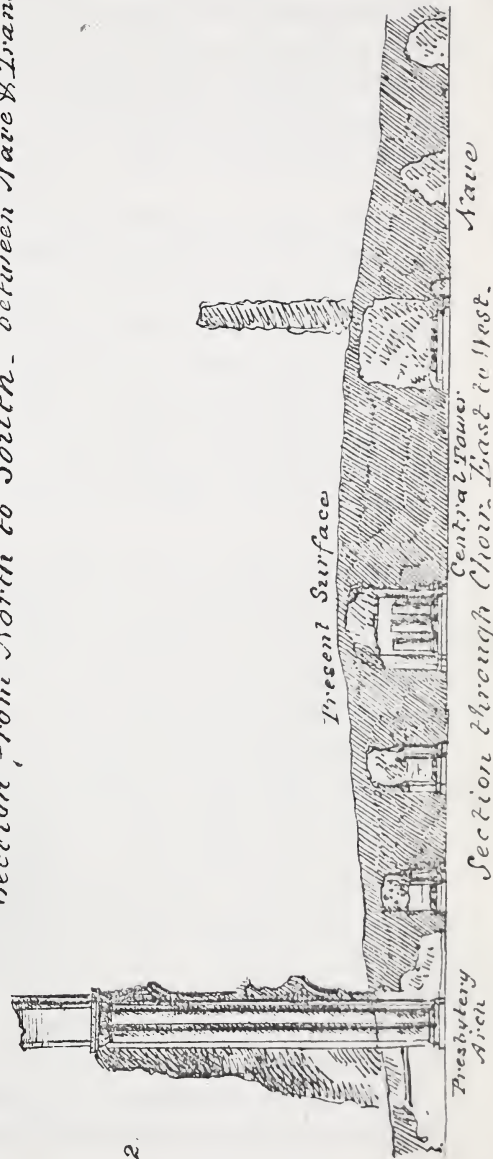 Section from North to South - between Nave & Tran
2.
Present Surface
Presbytery
Arch
Central Tower
Nave
Section through Choir East to West.